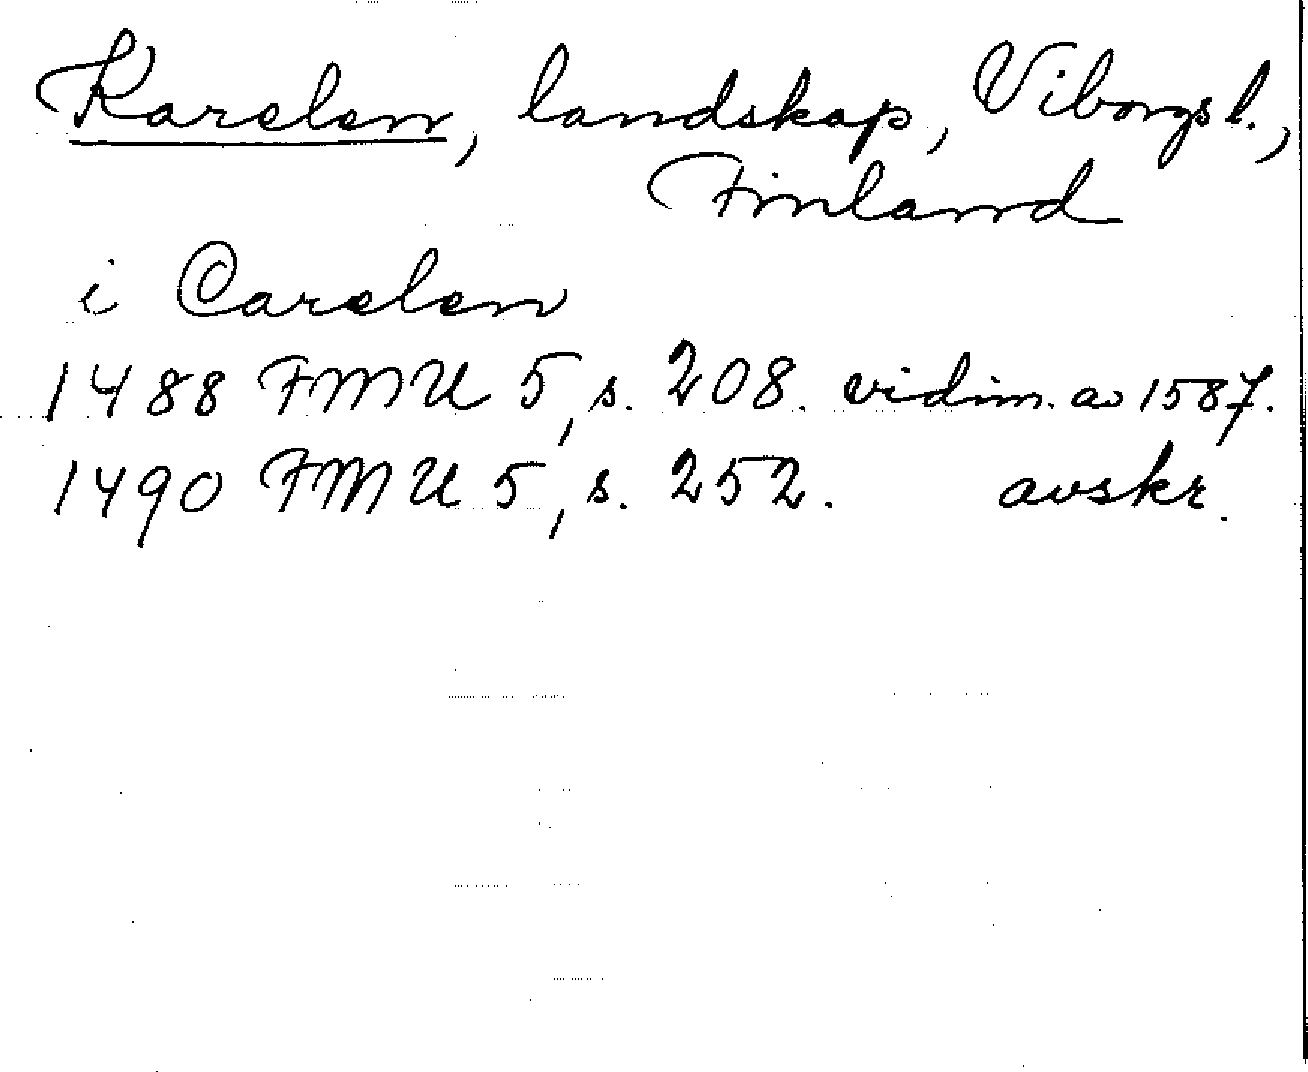 Karelen, landskap, Viborgs l.,
Finland
i Carelen
1488 FMU 5, s. 208. vidim. av 1587.
1490 FMU 5, s. 252. avskr.